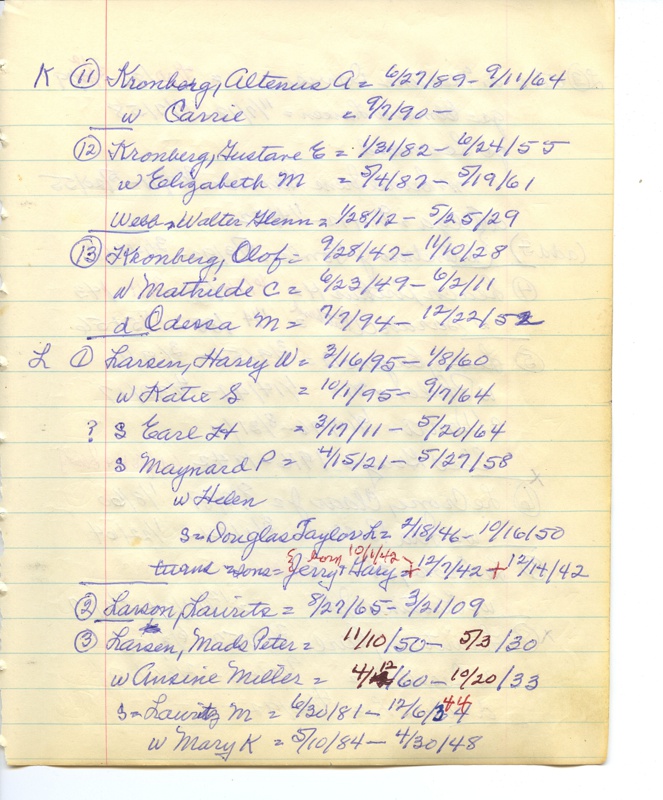 K ⑪ Kronberg, Altenius A = 6/27/89 - 9/11/64
w Carrie = 9/7/90 -
⑫ Kronberg, Gustave E = 1/31/82 - 6/24/55
w Elizabeth M = 5/4/87 - 5/19/61
Webb = Walter Glenn = 1/28/12 - 5/25/29
⑬ Kronberg, Olof = 9/28/47 - 11/10/28
w Mathilde C = 6/23/49 - 6/2/11
d Odessa M = 7/7/94 - 12/22/52
L ① Larsen, Harry W = 3/16/95 - 1/8/60
w Katie S = 10/1/95 - 9/7/64
? S Earl H = 3/17/11 - 5/20/64
S Maynard P = 4/15/21 - 5/27/58
w Helen
S = Douglas Taylor L = 2/18/46 - 10/16/50
twins = sons = { born 10/1/42 Jerry + Gary = + 12/7/42 + 12/14/42
② Larson, Lauritz = 8/27/65 - 3/21/09
③ Larsen, Mads Peter = 11/10/50 - 5/3/30
w Ansine Miller = 4/12/60 - 10/20/33
S = Lauritz M = 6/30/81 - 12/6/44
w Mary K = 5/10/84 - 4/30/48